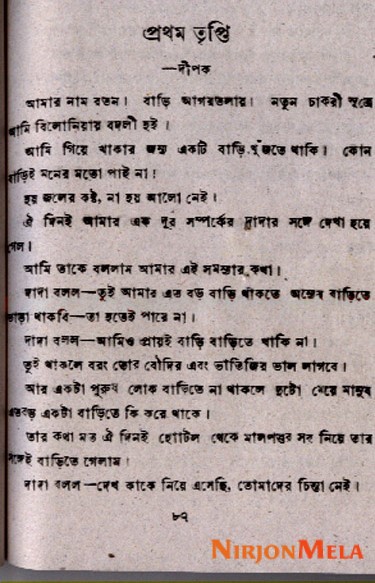 প্রথম তৃপ্তি
—দীপক
আমার নাম রতন। বাড়ি আগরতলায়। নতুন চাকরী সূত্রে
আমি বিলোনিয়ায় বদলী হই।
আমি গিয়ে থাকার জন্য একটি বাড়ি খুঁজতে থাকি। কোন
বাড়িই মনের মতো পাই না।
হয় জলের কষ্ট, না হয় আলো নেই।
ঐ দিনই আমার এক দূর সম্পর্কের দাদার সঙ্গে দেখা হয়ে
গেল।
আমি তাকে বললাম আমার এই সমস্যার কথা।
দাদা বলল—তুই আমার এত বড় বাড়ি থাকতে অন্যের বাড়িতে
ভাড়া থাকবি—তা হতেই পারে না।
দাদা বলল—আমিও প্রায়ই বাড়ি বাড়িতে থাকি না।
তুই থাকলে বরং তোর বৌদির এবং ভাতিজির ভাল লাগবে।
আর একটা পুরুষ লোক বাড়িতে না থাকলে দুটো মেয়ে মানুষ
এতবড় একটা বাড়িতে কি করে থাকে।
তার কথা মত ঐ দিনই হোটেল থেকে মালপত্তর সব নিয়ে তার
সঙ্গেই বাড়িতে গেলাম।
দাদা বলল—দেখ কাকে নিয়ে এসেছি, তোমাদের চিন্তা নেই।
৮৭
NIRJONMELA